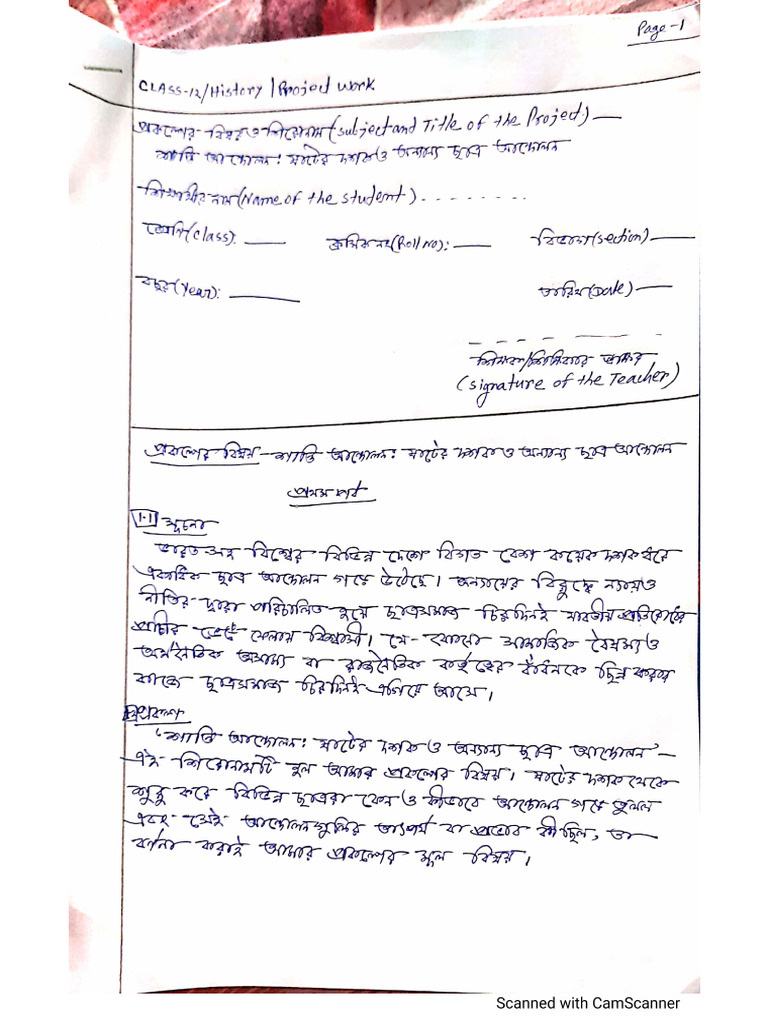 Page-1
CLASS-12/History/Project Work
প্রকল্পের বিষয় ও শিরোনাম (Subject and Title of the Project) —
শান্তি আন্দোলন: ষাটের দশক ও অন্যান্য ছাত্র আন্দোলন
শিক্ষার্থীর নাম (Name of the student) . . . . . . . .
শ্রেণি (Class): — ক্রমিক নং (Roll no): — বিভাগ (section) —
বছর (Year): — তারিখ (Date) —
শিক্ষক/শিক্ষিকার স্বাক্ষর
(signature of the Teacher)
প্রকল্পের বিষয় - শান্তি আন্দোলন: ষাটের দশক ও অন্যান্য ছাত্র আন্দোলন
প্রথম পর্ব
1.1 সূচনা
ভারত সহ বিশ্বের বিভিন্ন দেশে বিগত বেশ কয়েক দশক ধরে
একাধিক ছাত্র আন্দোলন গড়ে উঠেছে। অন্যায়ের বিরুদ্ধে ন্যায় ও
নীতির দ্বারা পরিচালিত হয়ে ছাত্রসমাজ চিরদিনই যাবতীয় প্রতিরোধের
প্রাচীর ভেঙে ফেলায় বিশ্বাসী। যে-কোনো সামাজিক বৈষম্য ও
অর্থনৈতিক অসাম্য বা রাজনৈতিক কর্তৃত্বের বাঁধনকে ছিন্ন করার
কাজে ছাত্রসমাজ চিরদিনই এগিয়ে আসে।
'শান্তি আন্দোলন: ষাটের দশক ও অন্যান্য ছাত্র আন্দোলন' —
এই শিরোনামটি হল আমার প্রকল্পের বিষয়। ষাটের দশক থেকে
শুরু করে বিভিন্ন ছাত্ররা কেন ও কীভাবে আন্দোলন গড়ে তুলল
এবং সেই আন্দোলনগুলির তাৎপর্য বা প্রভাব কী ছিল, তা
বর্ণনা করাই আমার প্রকল্পের মূল বিষয়।
Scanned with CamScanner